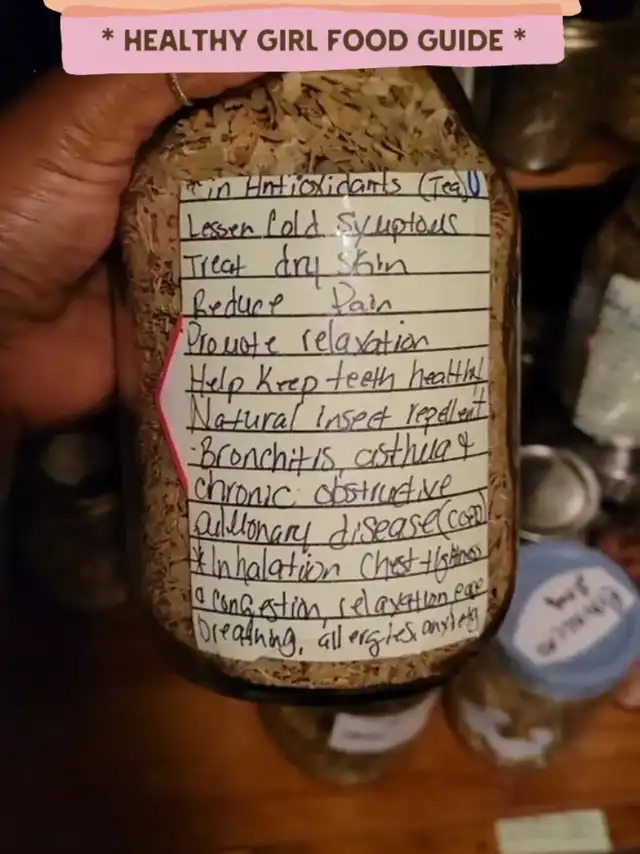 * HEALTHY GIRL FOOD GUIDE *
in Antioxidants (Tea)
Lessen Cold Symptoms
Treat dry skin
Reduce Pain
Promote relaxation
Help Keep teeth healthy
Natural Insect repellent
-Bronchitis, asthma &
chronic obstructive
pulmonary disease (COPD)
*Inhalation Chest tightness
congestion, relaxation ease
breathing, allergies, anxiety